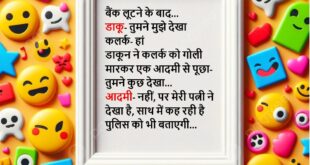 बैंक लूटने के बाद...
डाकू- तुमने मुझे देखा
कलर्क- हां
डाकून ने कलर्क को गोली
मारकर एक आदमी से पूछा-
तुमने कुछ देखा...
आदमी- नहीं, पर मेरी पत्नी ने
देखा है, साथ में कह रही है
पुलिस को भी बताएगी...